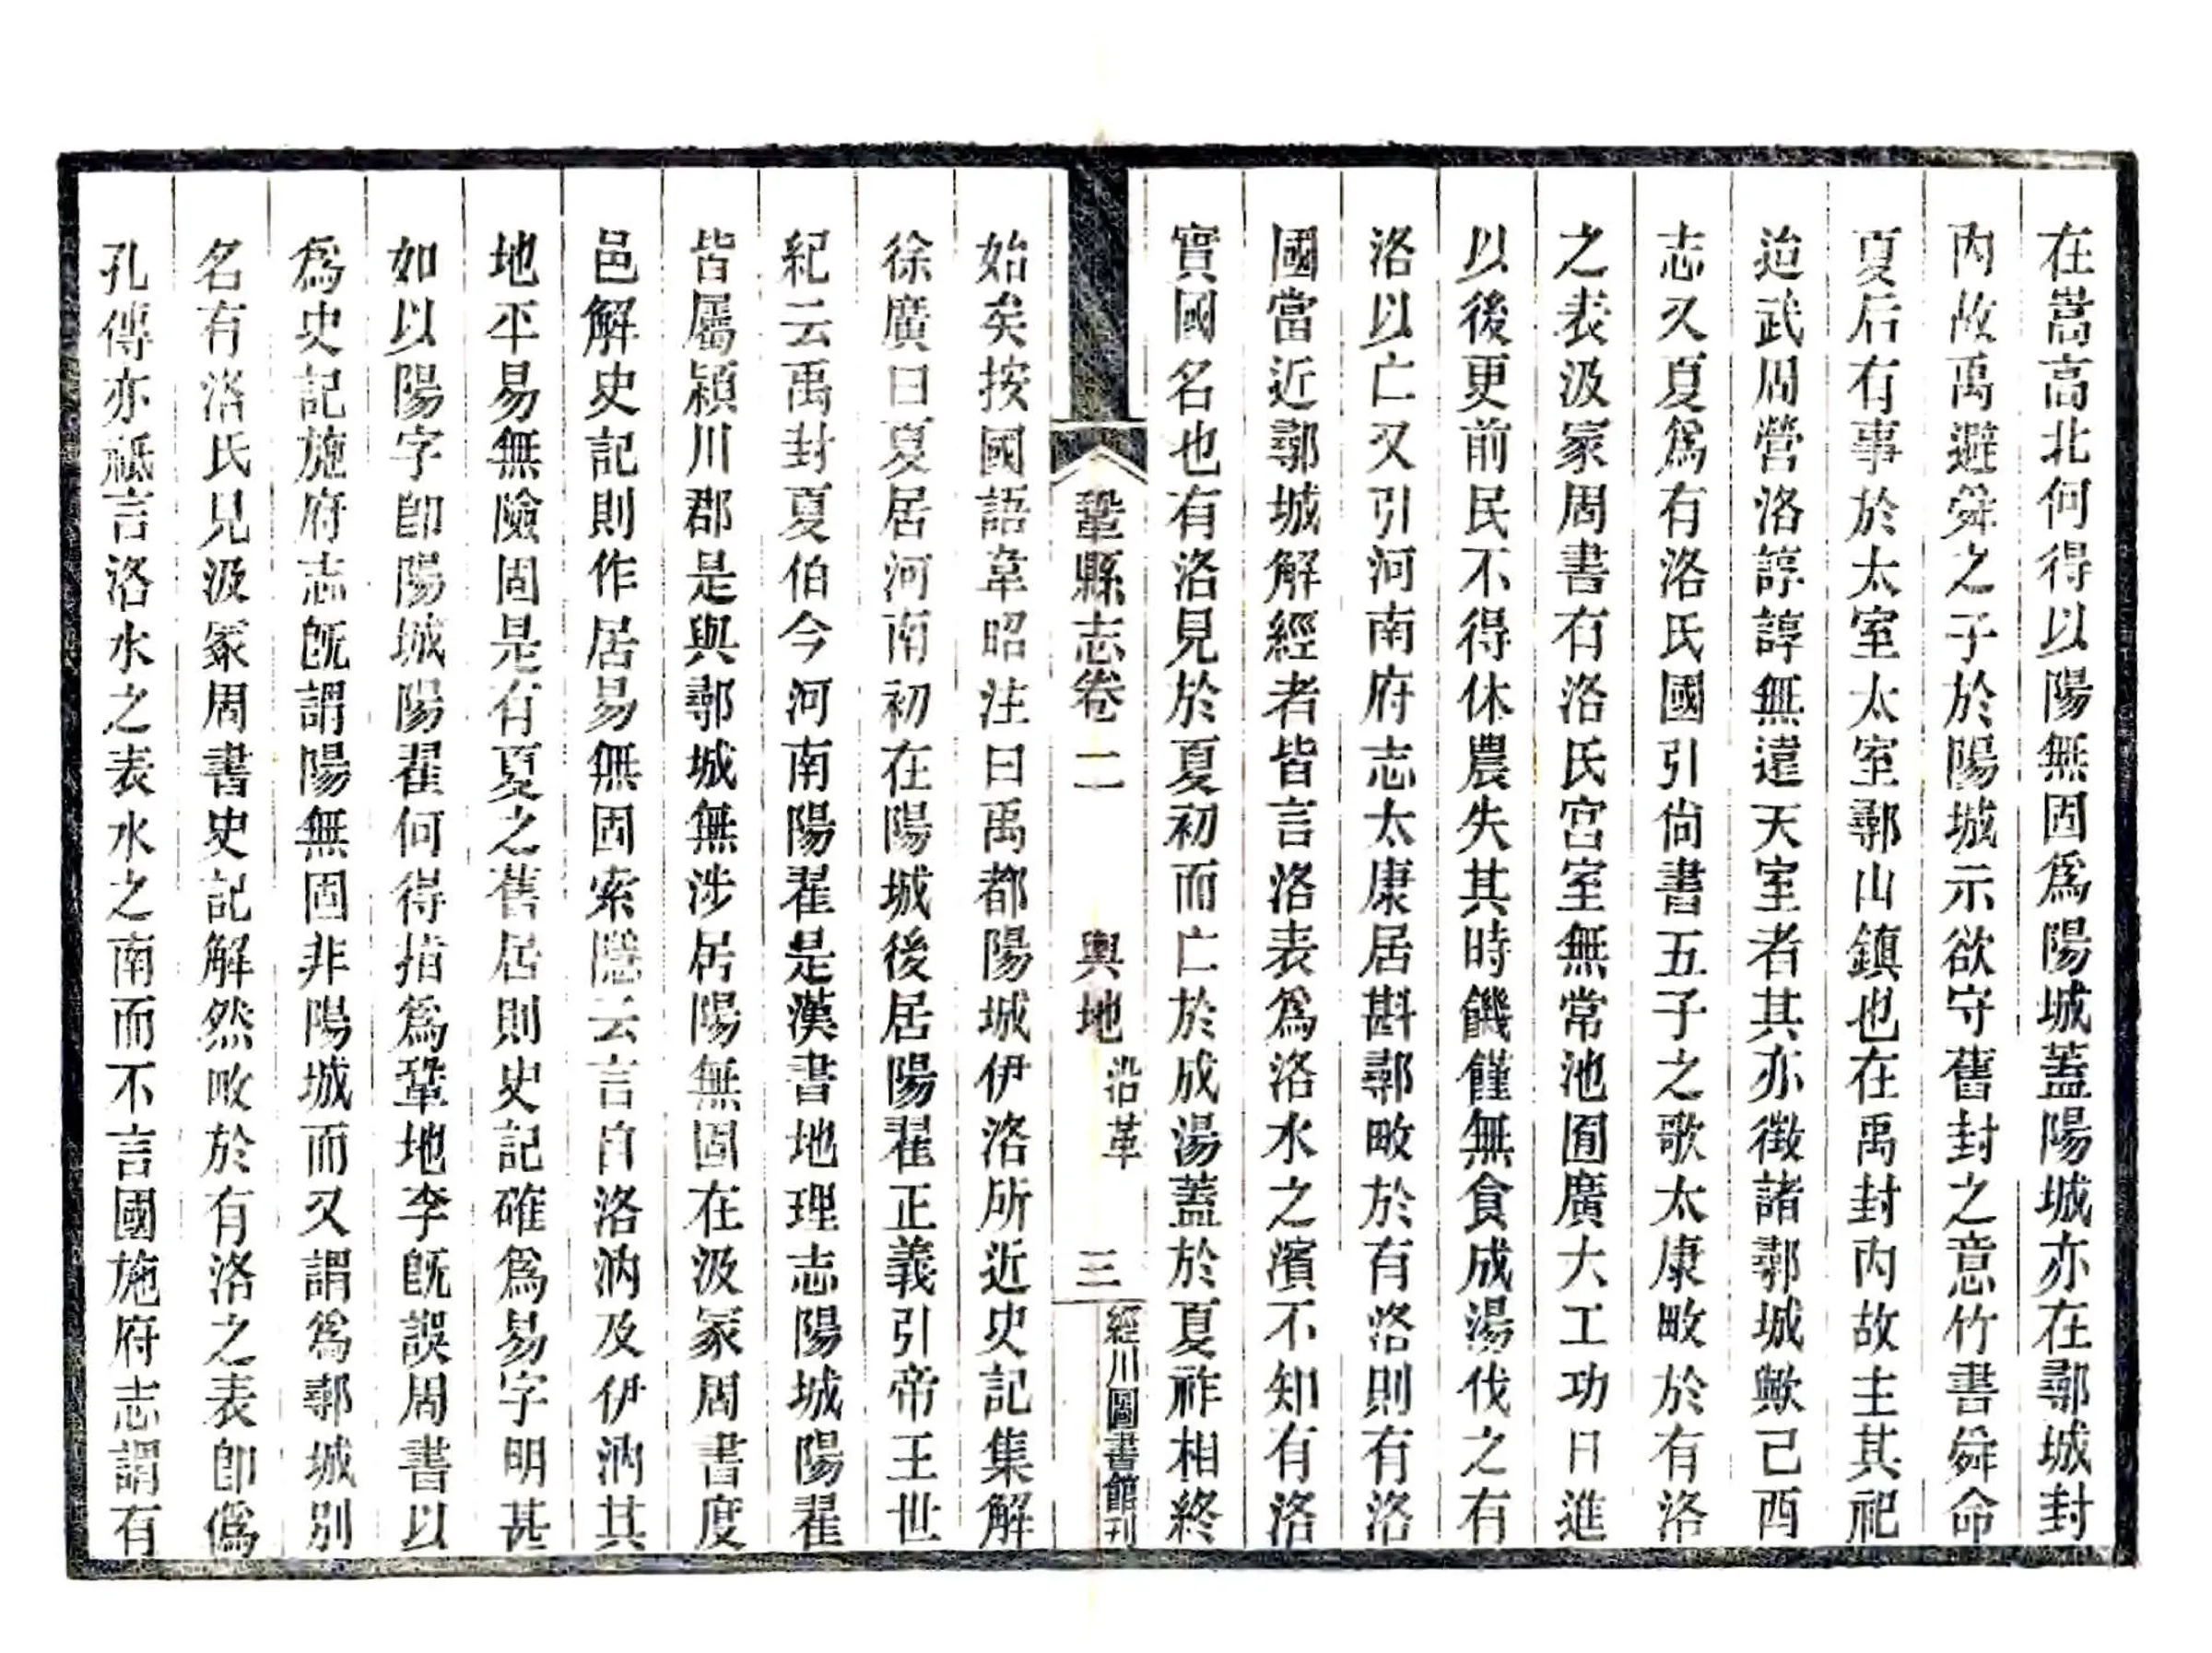 在嵩高北何得以陽無固爲陽城蓋陽城亦在鄩城封
內故禹避舜之子於陽城示欲守舊封之意竹書舜命
夏后有事於太室太室鄩山鎮也在禹封內故主其祀
迨武周營洛諄諄無遠天室者其亦徵諸鄩城歟己酉
志又夏爲有洛氏國引尙書五子之歌太康畋於有洛
之表汲冢周書有洛氏宮室無常池囿廣大工功日進
以後更前民不得休農失其時饑饉無食成湯伐之有
洛以亡又引河南府志太康居斟鄩畋於有洛則有洛
國當近鄩城解經者皆言洛表爲洛水之濱不知有洛
實國名也有洛見於夏初而亡於成湯蓋於夏祚相終
鞏縣志卷二 輿地 沿革 三 經川圖書館刊
始矣按國語韋昭注曰禹都陽城伊洛所近史記集解
徐廣曰夏居河南初在陽城後居陽翟正義引帝王世
紀云禹封夏伯今河南陽翟是漢書地理志陽城陽翟
皆屬潁川郡是與鄩城無涉居陽無固在汲冢周書度
邑解史記則作居易無固索隱云言自洛汭及伊汭其
地平易無險固是有夏之舊居則史記確爲易字明甚
如以陽字卽陽城陽翟何得指爲鞏地李旣誤周書以
爲史記施府志旣謂陽無固非陽城而又謂爲鄩城別
名有洛氏見汲冢周書史記解然畋於有洛之表卽僞
孔傳亦祗言洛水之表水之南而不言國施府志謂有